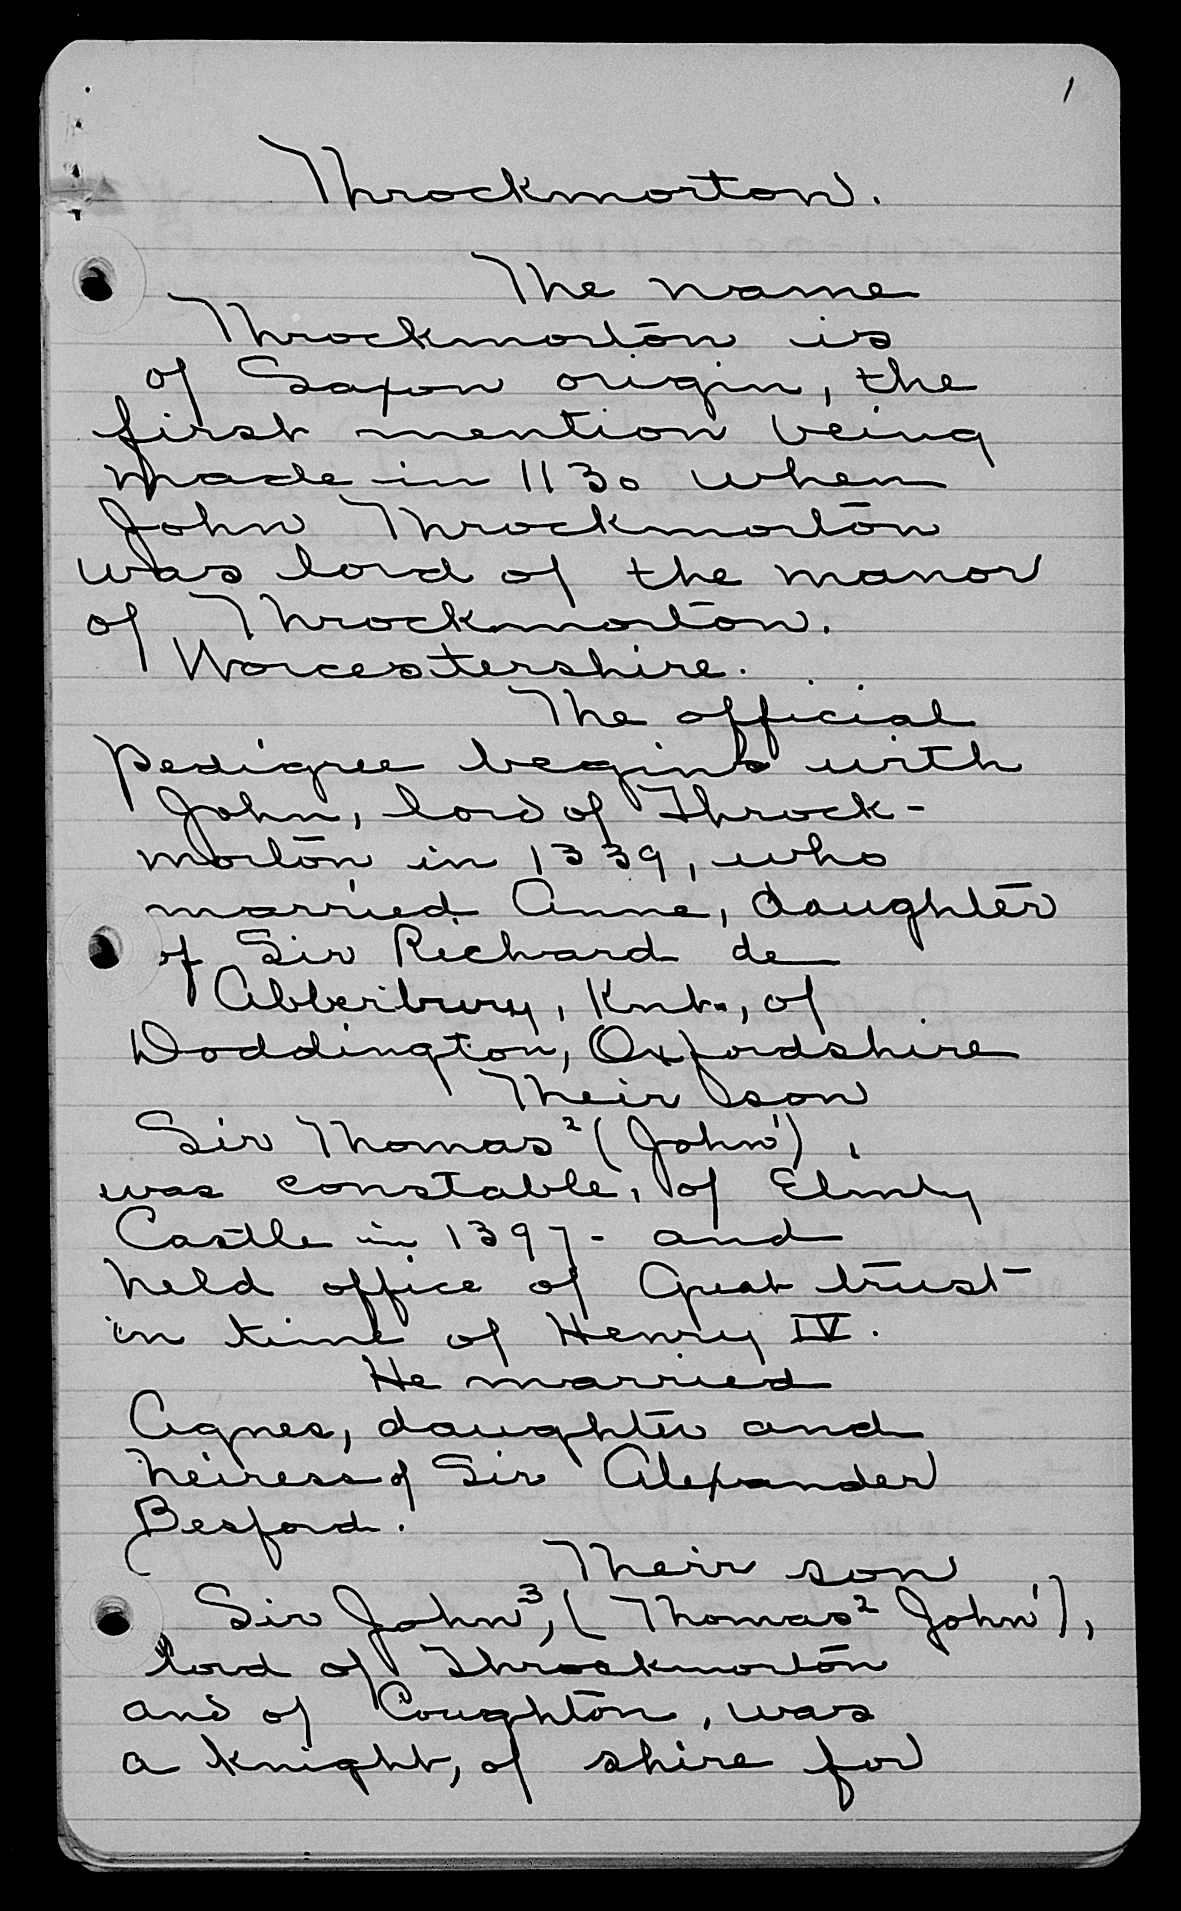 1
Throckmorton.
The name
Throckmorton is
of Saxon origin, the
first mention being
made in 1130 when
John Throckmorton
was lord of the manor
of Throckmorton.
Worcestershire.
The official
pedigree begins with
John, lord of Throck-
morton in 1339, who
married Anne, daughter
of Sir Richard de
Abberibury, Knt., of
Doddington, Oxfordshire
Their son
Sir Thomas² (John¹),
was constable, of Elmly
Castle in 1397 - and
held office of Great trust
in time of Henry IV.
He married
Agnes, daughter and
heiress of Sir Alexander
Besford.
Their son
Sir John³, (Thomas² John¹),
lord of Throckmorton
and of Coughton, was
a knight, of shire for